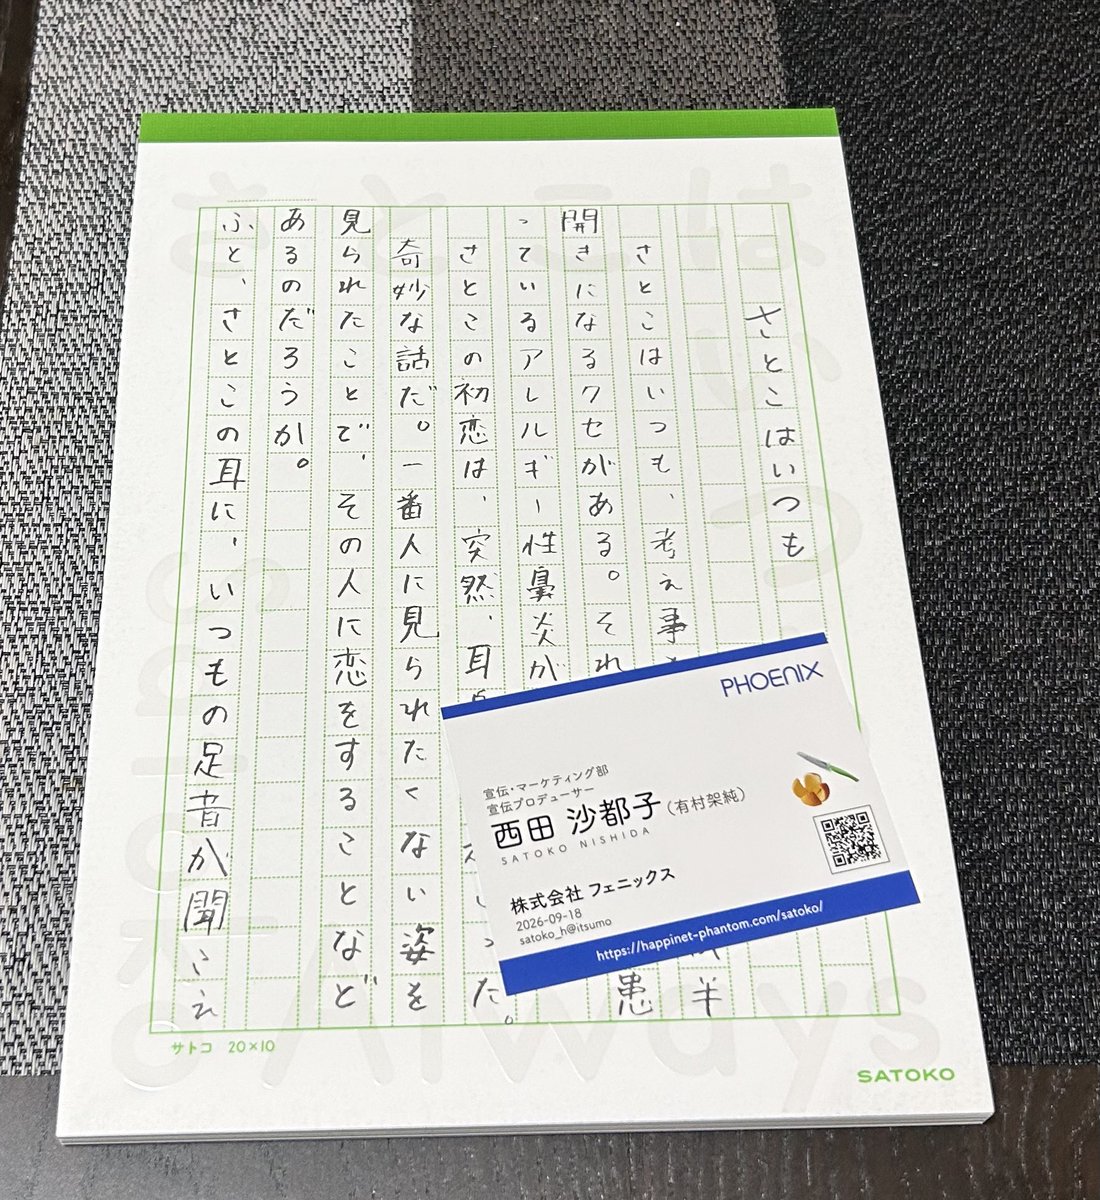 さとこは
さとこはいつも
さとこはいつも、考え事 半
開きになるクセがある。それ 患
っているアレルギー性鼻炎が
さとこの初恋は、突然、耳 った。
奇妙な話だ。一番人に見られたくない姿を
見られたことで、その人に恋をすることなど
あるのだろうか。
ふと、さとこの耳に、いつもの足音が聞こえ
Always
サトコ 20×10
SATOKO
PHOENIX
宣伝・マーケティング部
宣伝プロデューサー
西田 沙都子(有村架純)
SATOKO NISHIDA
株式会社 フェニックス
2026-09-18
satoko_h@itsumo
https://happinet-phantom.com/satoko/